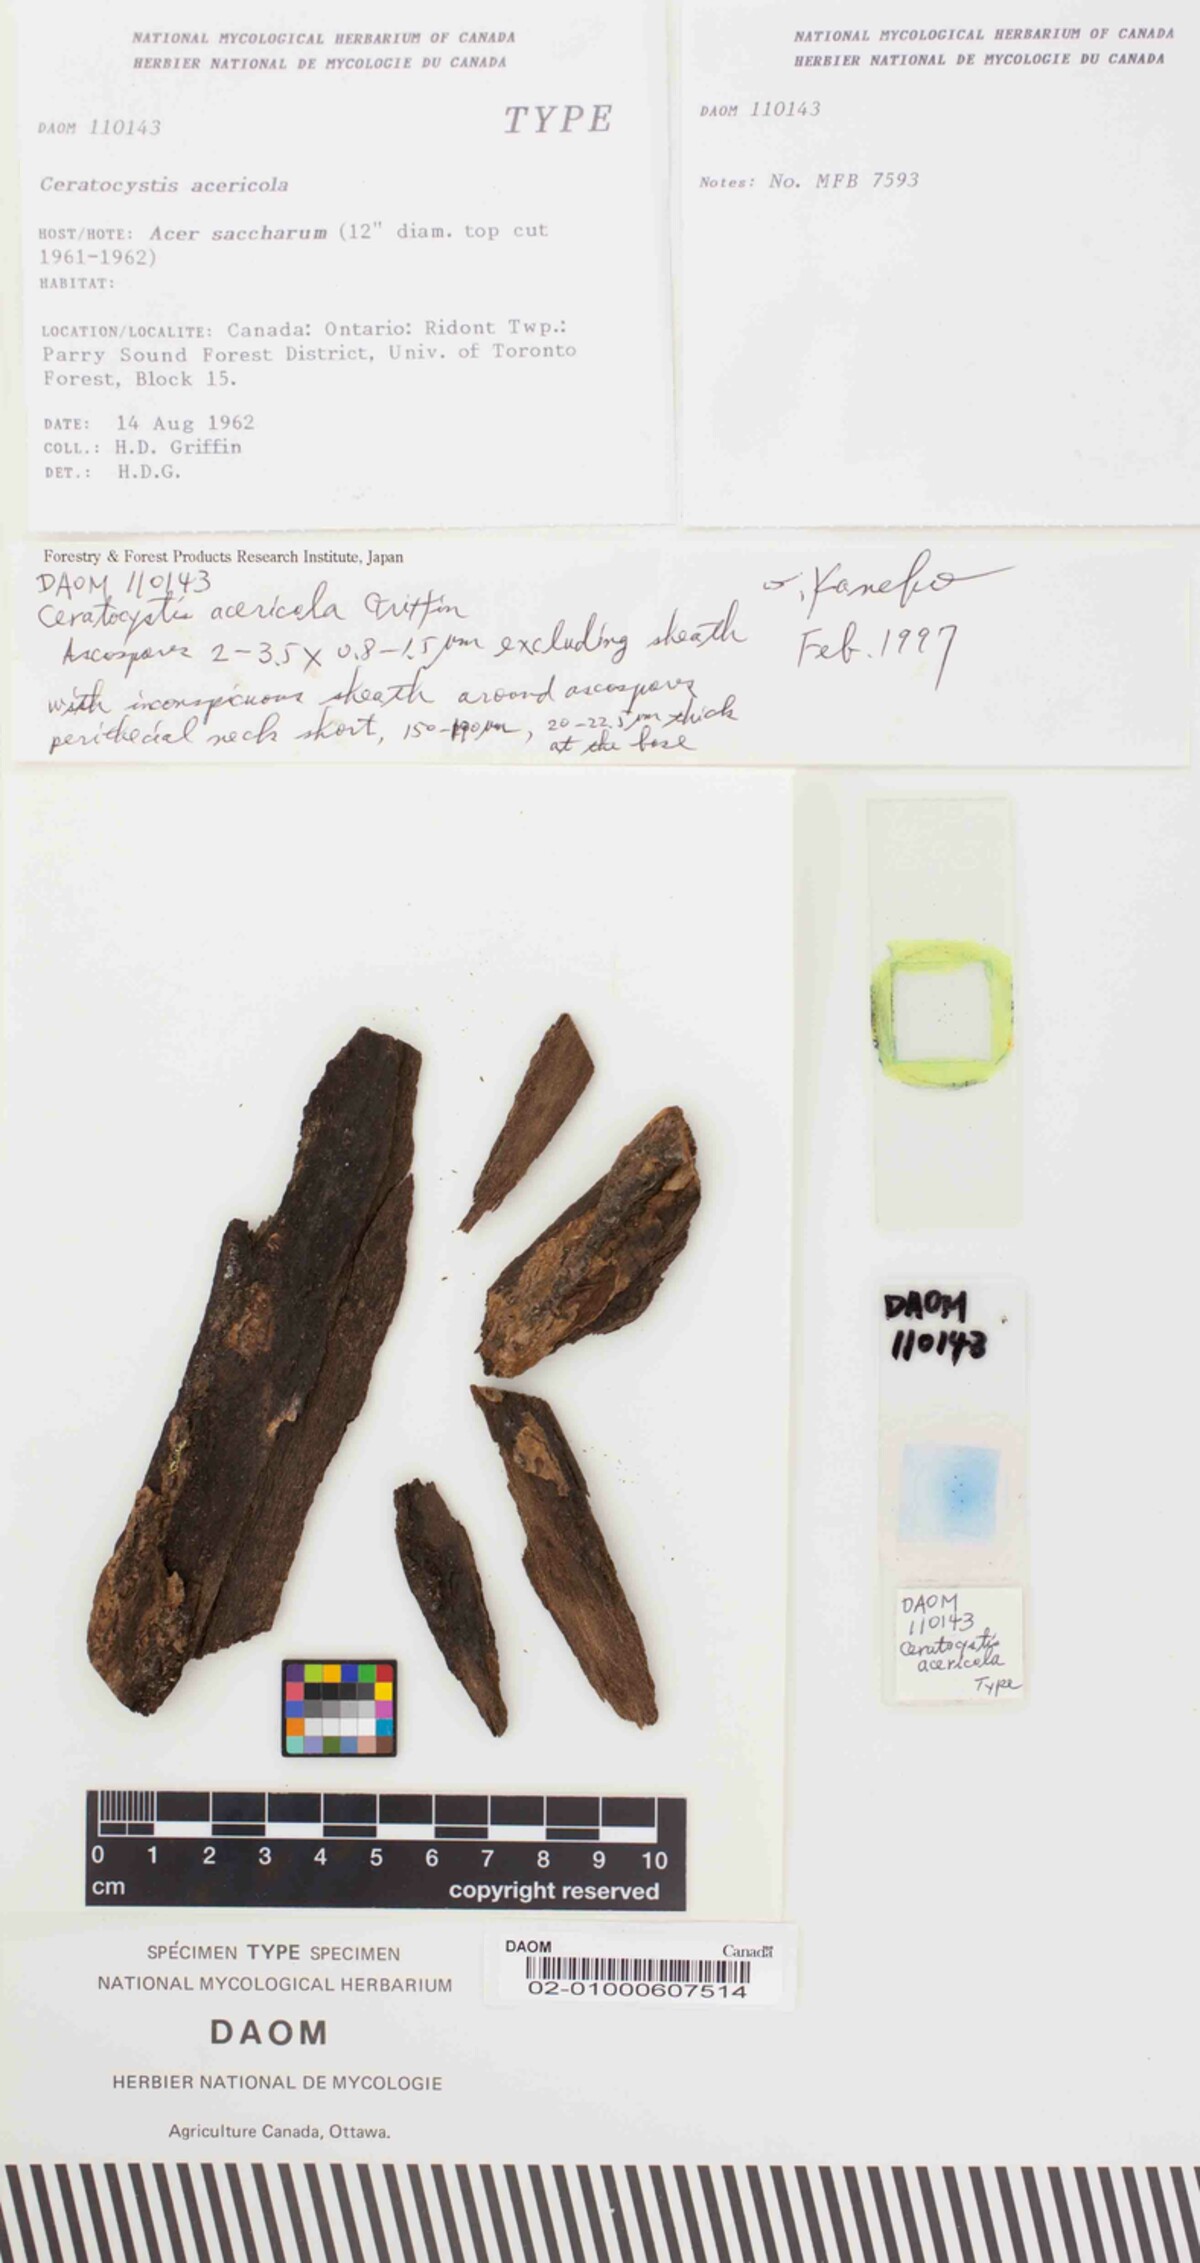 NATIONAL MYCOLOGICAL HERBARIUM OF CANADA
HERBIER NATIONAL DE MYCOLOGIE DU CANADA
DAOM 110143
TYPE
Ceratocystis acericola
HOST/HOTE: Acer saccharum (12" diam. top cut
1961-1962)
HABITAT:
LOCATION/LOCALITE: Canada: Ontario: Ridont Twp.:
Parry Sound Forest District, Univ. of Toronto
Forest, Block 15.
DATE: 14 Aug 1962
COLL.: H.D. Griffin
DET.: H.D.G.
NATIONAL MYCOLOGICAL HERBARIUM OF CANADA
HERBIER NATIONAL DE MYCOLOGIE DU CANADA
DAOM 110143
Notes: No. MFB 7593
Forestry & Forest Products Research Institute, Japan
DAOM 110143
Ceratocystis acericola Griffin
Ascospores 2-3.5 x 0.8-1.5 µm excluding sheath
with inconspicuous sheath around ascospores
perithecial neck short, 20-22.5 µm thick
at the base
Kaneko
Feb. 1997
DAOM
110143
DAOM
110143
Ceratocystis
acericola
Type
0 1 2 3 4 5 6 7 8 9 10
cm
copyright reserved
SPÉCIMEN TYPE SPECIMEN
NATIONAL MYCOLOGICAL HERBARIUM
DAOM
HERBIER NATIONAL DE MYCOLOGIE
Agriculture Canada, Ottawa.
DAOM
Canada
02-01000607514